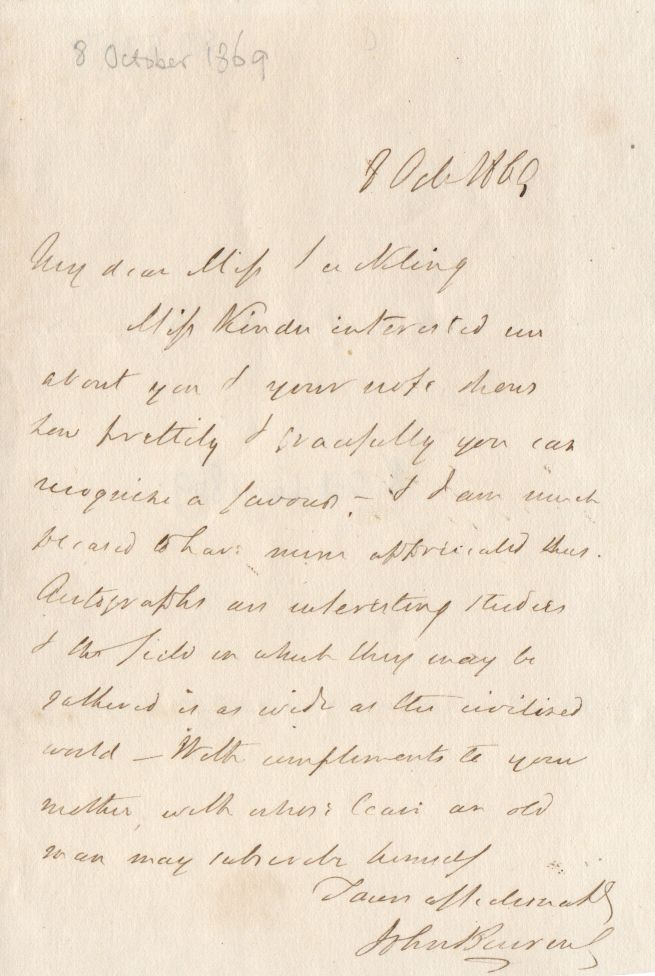 8 October 1869
8 Oct 1869
My dear Miss
Miss Kinder interested me
about you & your note shews
how prettily & gracefully you can
recognise a favour – & I am much
pleased to have mine appreciated thus.
Autographs are interesting studies
& the field in which they may be
gathered is as wide as the civilized
world – With compliments to your
mother, with whose leave an old
man may subscribe himself
Yours affectionately
John